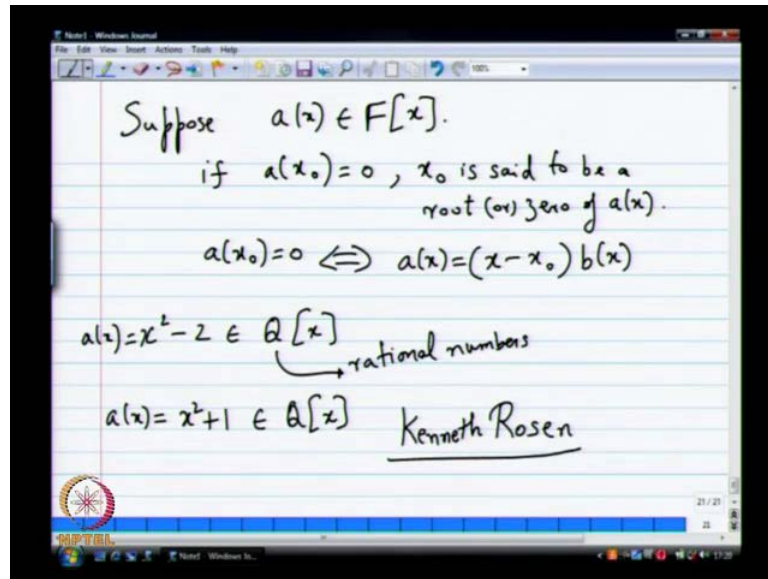 Note1 - Windows Journal
File Edit View Insert Actions Tools Help
100%
Suppose a(x) ∈ F[x].
if a(x₀) = 0 , x₀ is said to be a
root (or) zero of a(x).
a(x₀) = 0 ⇔ a(x) = (x - x₀) b(x)
a(x) = x² - 2 ∈ Q[x]
rational numbers
a(x) = x² + 1 ∈ Q[x] Kenneth Rosen
21 / 21
21
NPTEL
Note1 - Windows Jo...
17:20